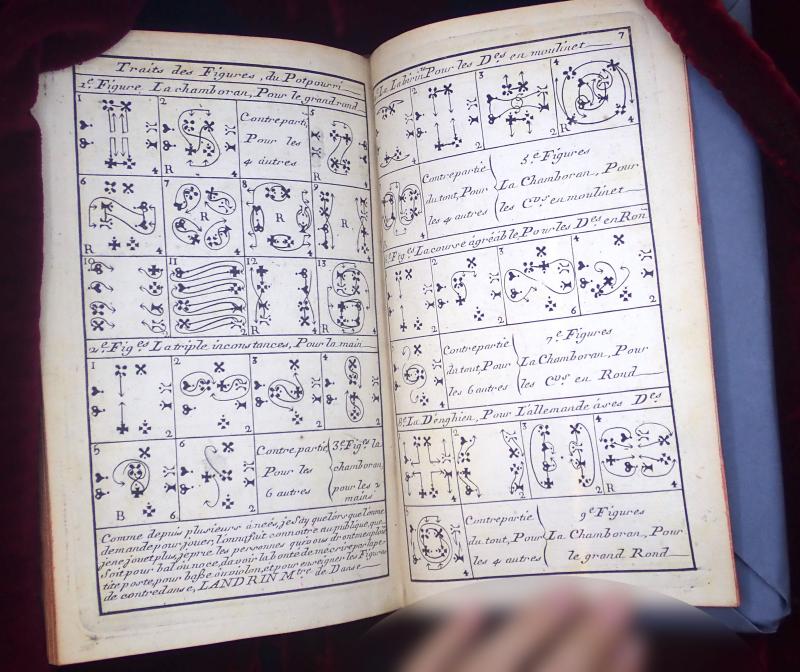 Traits des Figures, du Potpourri
1.e Figure, La chamboran, Pour le grand rond
1
2
Contreparti
Pour les
4 autres
5
4
2
4
6
7
8
9
R
R
R
R
4
4
4
10
11
12
13
R
R
4
2
4
4
2.e Fig.es La triple inconstances, Pour la main
1
2
3
4
2
2
2
2
5
6
Contre partie
Pour les
6 autres
3.e Fig.es la
chamboran,
pour les 2
mains
B
6
2
Comme depuis plusieurs
demande pour jouer,
je ne joue plus, je prie les personnes
Soit pour bal ou noce, d'avoir la bonté de m'ecrire par la pe-
tite poste, pour basse ou violon, et pour enseigner les Figures
de contredanse, LANDRIN M.tre de Danse
7
Pour les D.es en moulinet
2
3
4
R
2
4
4
Contre partie
du tout, Pour
les 4 autres
5.e Figures
La Chamboran, Pour
les C.us en moulinet
Fig.es La course agréable, Pour les D.es en Ron
2
3
4
2
2
6
2
Contre partie
du tout, Pour
les 6 autres
7.e Figures
La Chamboran, Pour
les C.us en Rond
8.e La Denghien, Pour L'allemande à ses D.es
2
3
4
R
4
2
2
4
Contre partie
du tout, Pour
les 4 autres
9.e Figures
La Chamboran, Pour
le grand Rond